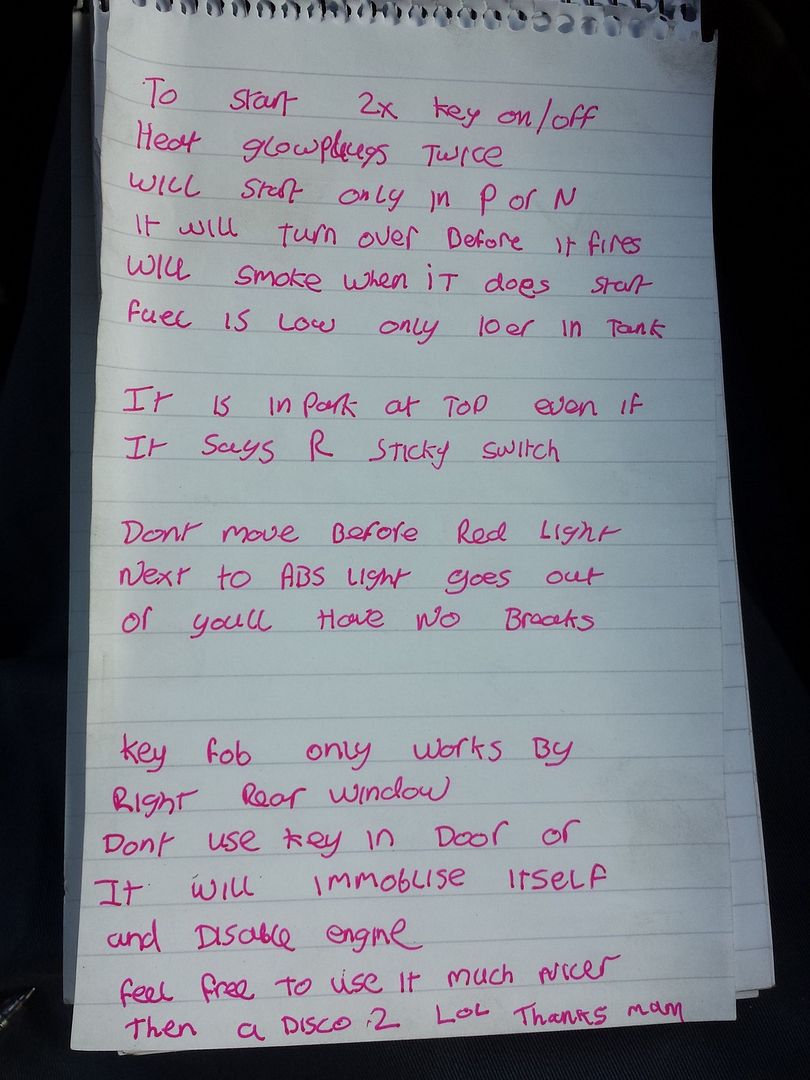 To start 2x key on/off
Heat glowplugs Twice
Will start only in P or N
It will turn over Before it fires
Will smoke when iT does start
fuel IS Low only 10er in Tank
It is in Park at Top even if
It Says R Sticky switch
Dont move Before Red Light
Next to ABS Light goes out
or youll Have No Breaks
Key fob only works By
Right Rear Window
Dont use key in Door or
It will immoblise itself
and Disable engine
feel free to use it much nicer
Then a DISCO 2 LoL Thanks mam